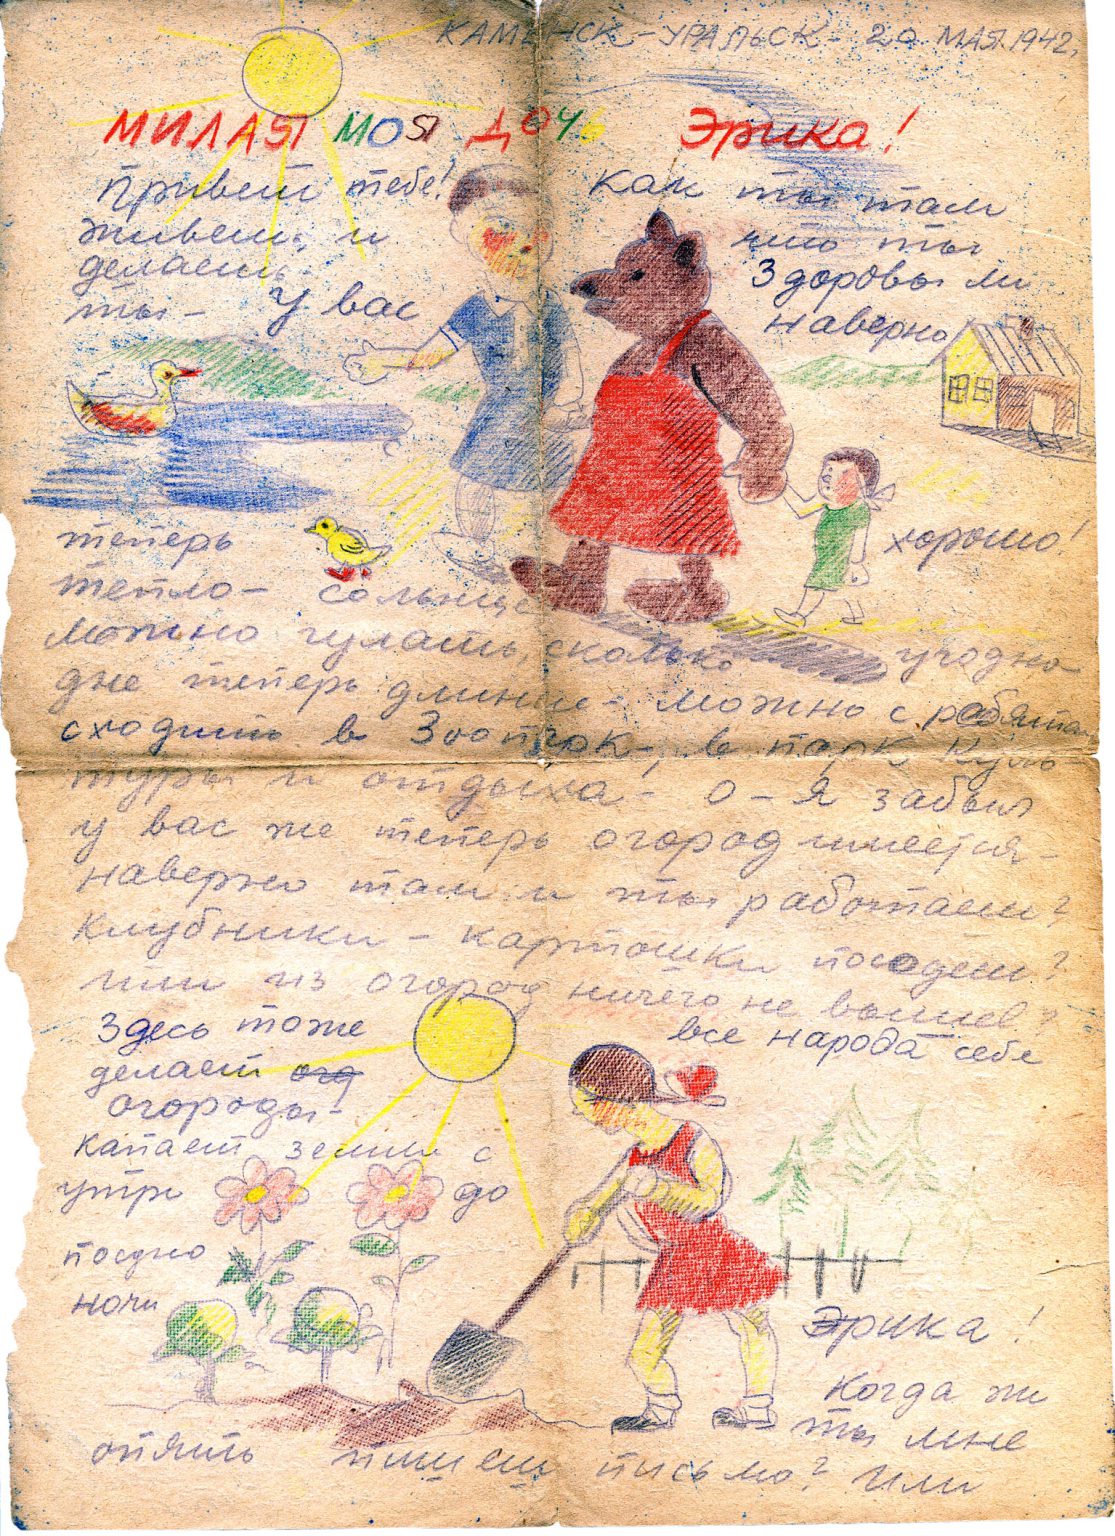 КАМЕНСК-УРАЛЬСК- 20 МАЯ.1942.
МИЛАЯ МОЯ ДОЧЬ Эрика!
Привет тебе! Как ты там
живеш, и что ты
делаеш- Здоровы ли
ты- У вас наверно
теперь хорошо!
тепло- сольнце
можно гулать, сколько угодно-
дне теперь длинне- можно с робятам
сходить в Зоопарк-, в парк Куль
туры и отдыха- о-я забыл
у вас же теперь огород имеется-
наверно там и ты работаеш?
Клубники- картошки посодеш?
или из огород ничего не вышев?
Здесь тоже все народа себе
делает огд
огороды-
капает земли с
утри до
посдно
ночи
Эрика!
Когда же
ты мне
опять пишеш письмо? Или